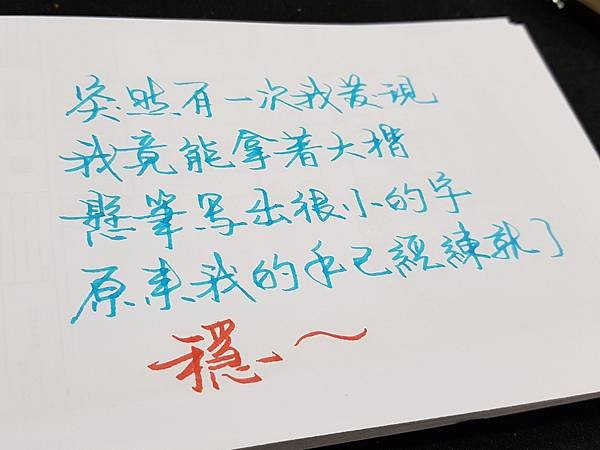 突然有一次我發現
我竟能拿着大楷
懸筆写出很小的字
原来我的手已經練就了
穩~